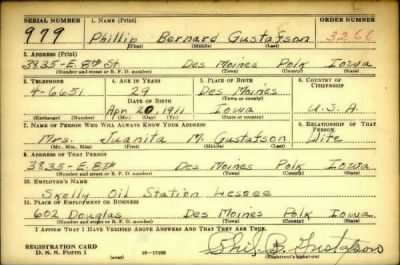 SERIAL NUMBER 1. NAME (Print) ORDER NUMBER
979 Phillip Bernard Gustafson 3266
(First) (Middle) (Last)
2. ADDRESS (Print)
3835-E. 8th St Des Moines Polk Iowa
(Number and street or R. F. D. number) (Town) (County) (State)
3. TELEPHONE 4. AGE IN YEARS 5. PLACE OF BIRTH 6. COUNTRY OF CITIZENSHIP
4-6651 29 Des Moines
DATE OF BIRTH (Town or county)
Apr 20, 1911 Iowa U.S.A.
(Exchange) (Number) (Mo.) (Day) (Yr.) (State or country)
7. NAME OF PERSON WHO WILL ALWAYS KNOW YOUR ADDRESS 8. RELATIONSHIP OF THAT PERSON
Mrs. Juanita M. Gustafson Wife
(Mr., Mrs., Miss) (First) (Middle) (Last)
9. ADDRESS OF THAT PERSON
3835-E. 8th Des Moines Polk Iowa
(Number and street or R. F. D. number) (Town) (County) (State)
10. EMPLOYER'S NAME
Skelly Oil Station Lessee
11. PLACE OF EMPLOYMENT OR BUSINESS
602 Douglas Des Moines Polk Iowa
(Number and street or R. F. D. number) (Town) (County) (State)
I AFFIRM THAT I HAVE VERIFIED ABOVE ANSWERS AND THAT THEY ARE TRUE.
REGISTRATION CARD
D. S. S. Form 1 16-17105 Phil. B. Gustafson
(Registrant's signature)